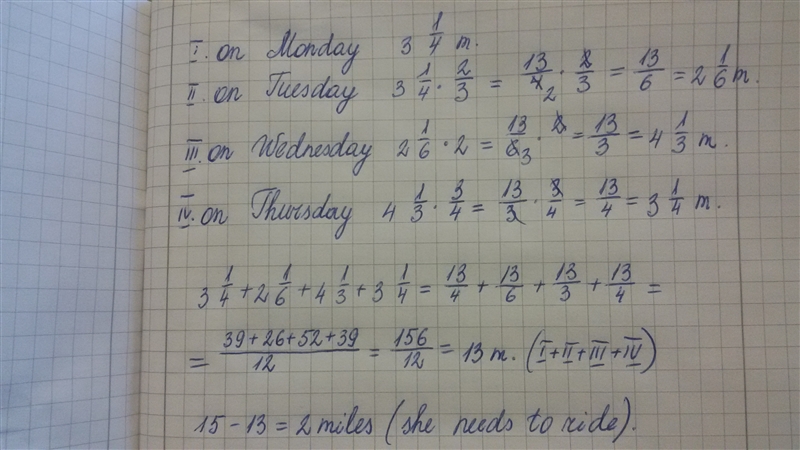 I. on Monday 3 1/4 m.
II. on Tuesday 3 1/4 · 2/3 = 13/4 2 · 2/3 = 13/6 = 2 1/6 m.
III. on Wednesday 2 1/6 · 2 = 13/6 3 · 2 = 13/3 = 4 1/3 m.
IV. on Thursday 4 1/3 · 3/4 = 13/3 · 3/4 = 13/4 = 3 1/4 m.
3 1/4 + 2 1/6 + 4 1/3 + 3 1/4 = 13/4 + 13/6 + 13/3 + 13/4 =
= 39+26+52+39/12 = 156/12 = 13 m. (I+II+III+IV)
15 - 13 = 2 miles (she needs to ride).